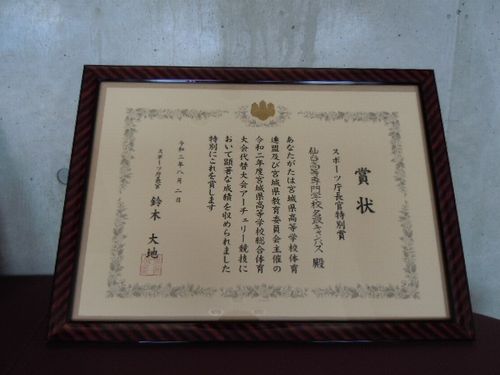 賞状
スポーツ庁長官特別賞
仙台高等専門学校名取キャンパス 殿
あなたがたは宮城県高等学校体育
連盟及び宮城県教育委員会主催の
令和二年度宮城県高等学校総合体育
大会代替大会アーチェリー競技に
おいて顕著な成績を収められました
特別にこれを賞します
令和二年八月二日
スポーツ庁長官 鈴木大地